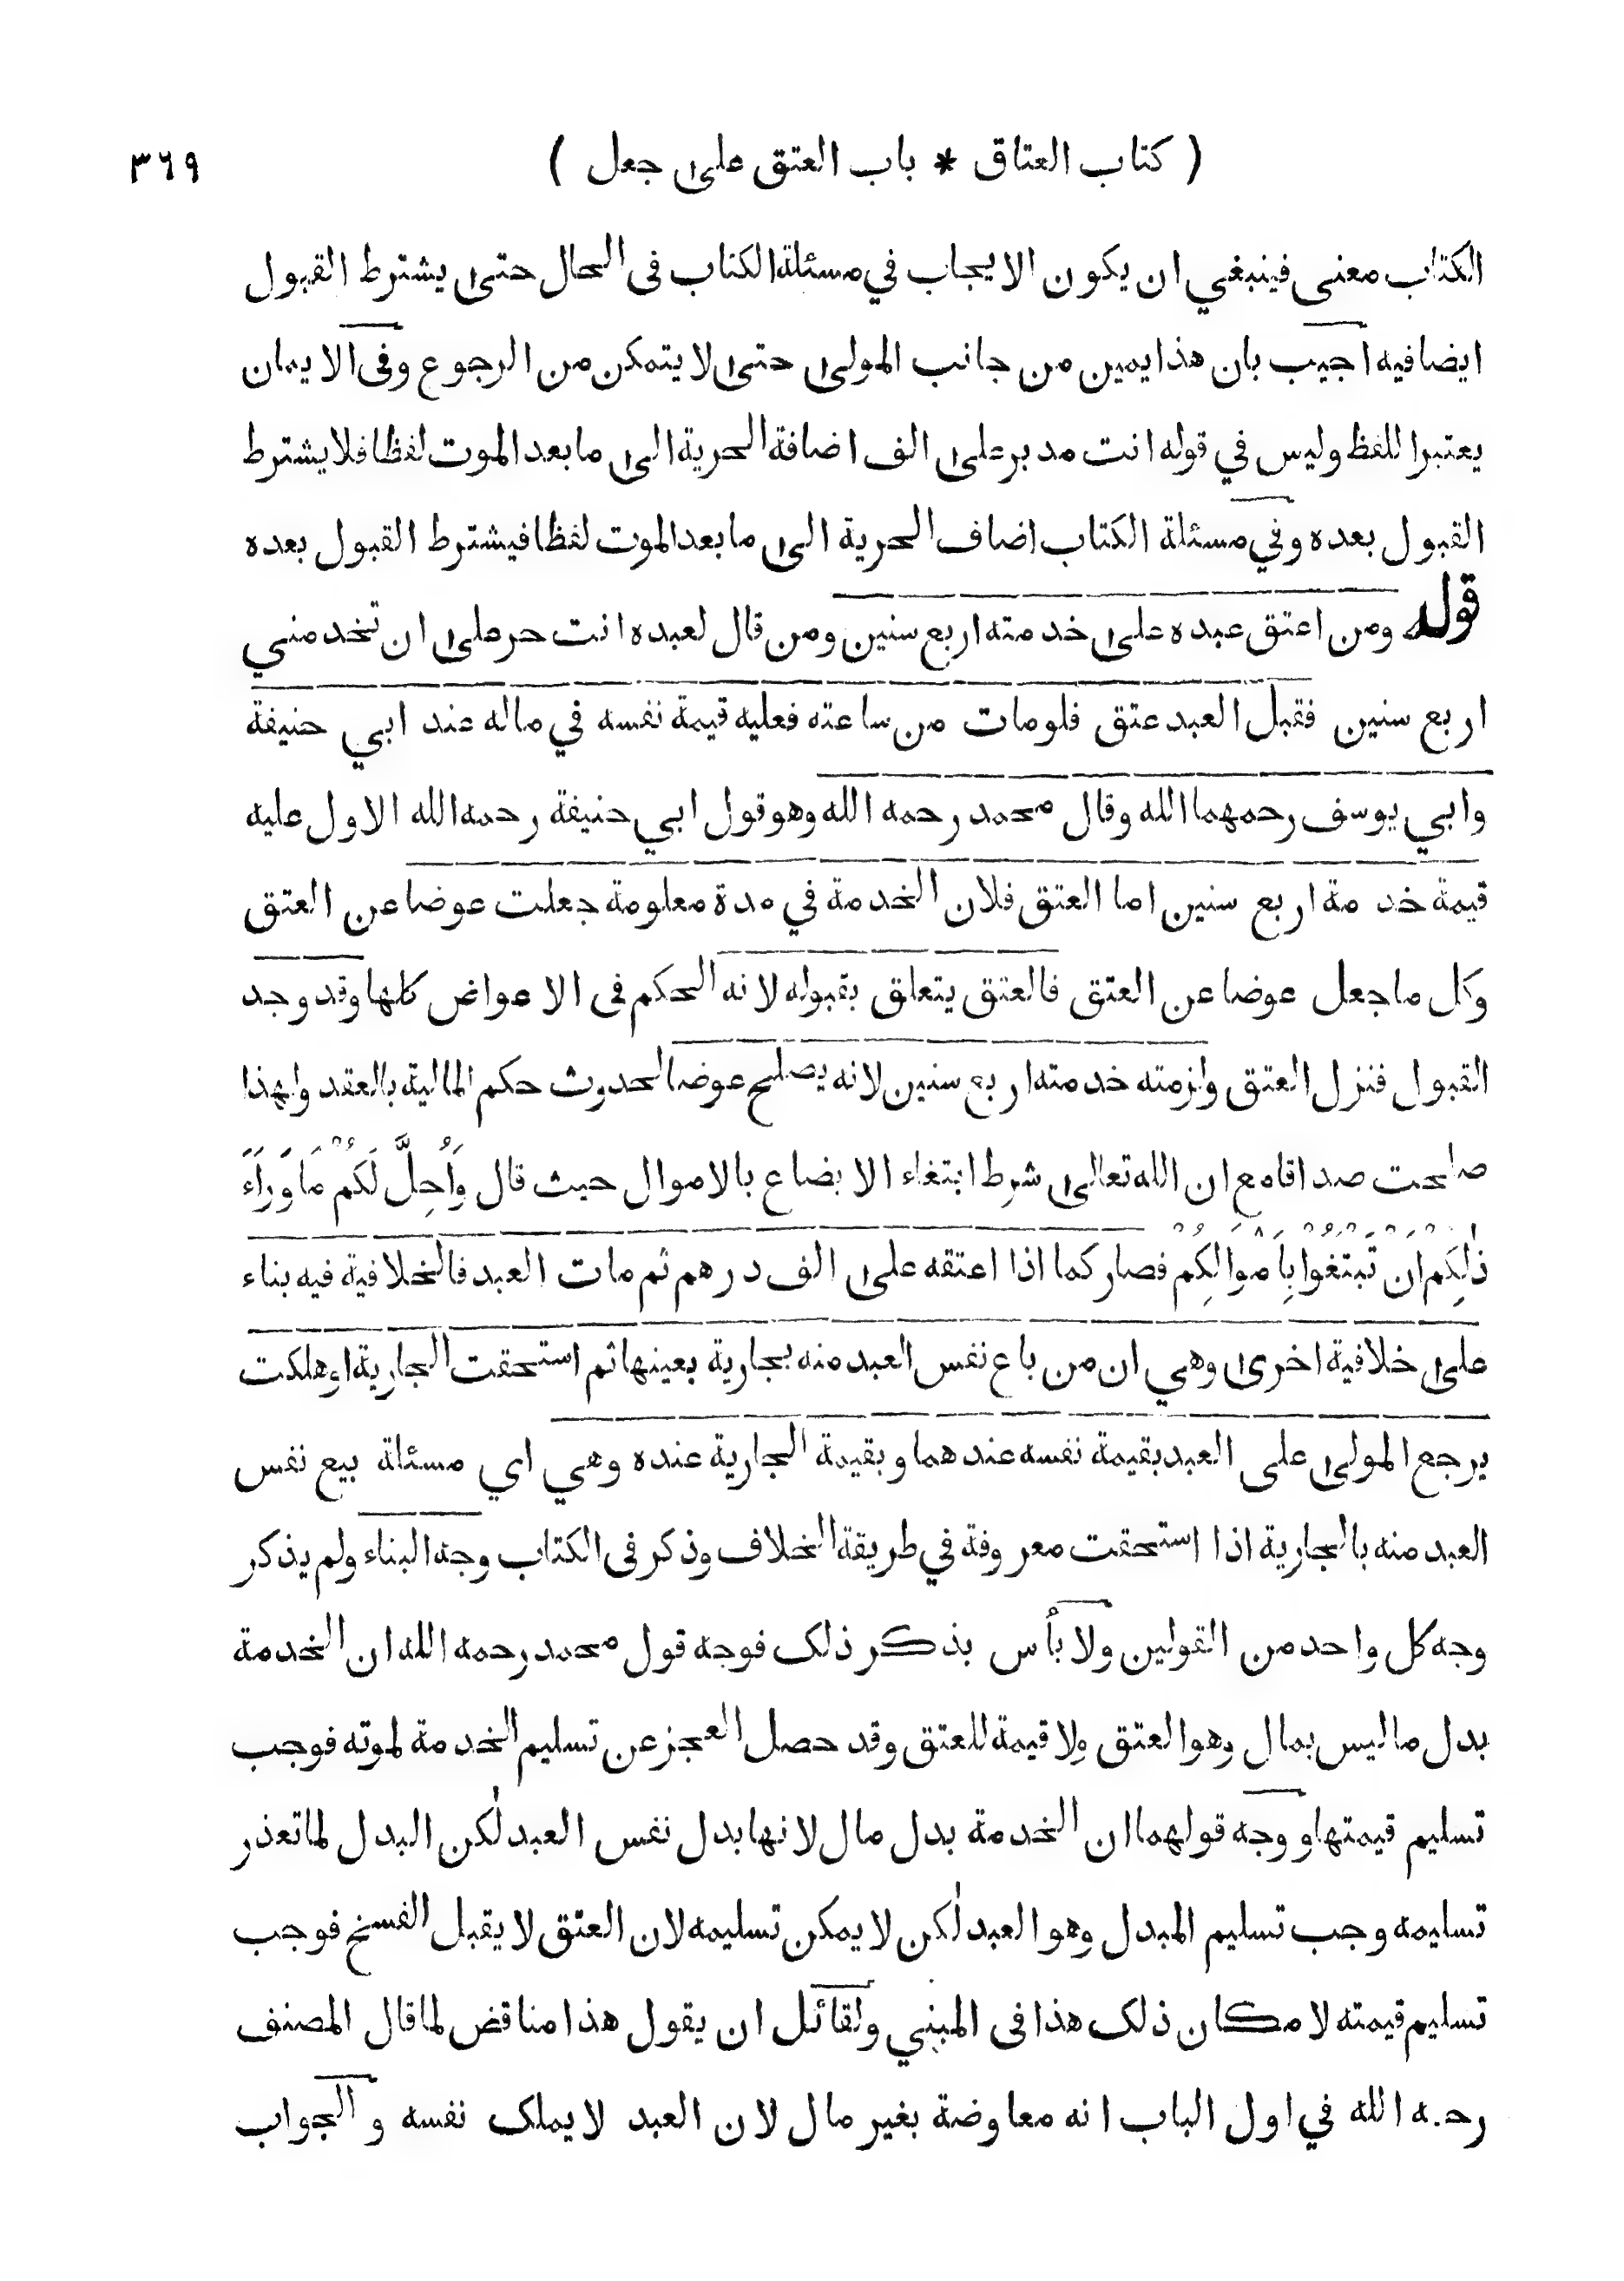 ( كتاب العتاق * باب العتق على جعل ) ٣٦٩
الكتاب معنى فينبغي ان يكون الايجاب في مسئلة الكتاب فى الحال حتى يشترط القبول
ايضا فيه اجيب بان هذا يمين من جانب المولى حتى لا يتمكن من الرجوع وفى الايمان
يعتبر اللفظ وليس في قوله انت مدبر على الف اضافة الحرية الى ما بعد الموت لفظا فلا يشترط
القبول بعده وفي مسئلة الكتاب اضاف الحرية الى ما بعد الموت لفظا فيشترط القبول بعده
قوله ومن اعتق عبده على خدمته اربع سنين ومن قال لعبده انت حر على ان تخدمني
اربع سنين فقبل العبد عتق فلو مات من ساعته فعليه قيمة نفسه في ماله عند ابي حنيفة
وابي يوسف رحمهما الله وقال محمد رحمه الله وهو قول ابي حنيفة رحمه الله الاول عليه
قيمة خدمة اربع سنين اما العتق فلان الخدمة في مدة معلومة جعلت عوضا عن العتق
وكل ما جعل عوضا عن العتق فالعتق يتعلق بقبوله لانه الحكم فى الاعواض كلها وقد وجد
القبول فنزل العتق ولزمته خدمته اربع سنين لانه يصلح عوضا لحدوث حكم المالية بالعقد ولهذا
صلحت صداقا مع ان الله تعالى شرط ابتغاء الابضاع بالاموال حيث قال وَاُحِلَّ لَكُمْ مَا وَرَآءَ
ذٰلِكُمْ اَنْ تَبْتَغُوْا بِاَمْوَالِكُمْ فصار كما اذا اعتقه على الف درهم ثم مات العبد فالخلافية فيه بناء
على خلافية اخرى وهي ان من باع نفس العبد منه بجارية بعينها ثم استحقت الجارية او هلكت
يرجع المولى على العبد بقيمة نفسه عندهما وبقيمة الجارية عنده وهي اي مسئلة بيع نفس
العبد منه بالجارية اذا استحقت معروفة في طريقة الخلاف وذكر فى الكتاب وجه البناء ولم يذكر
وجه كل واحد من القولين ولا بأس بذكر ذلك فوجه قول محمد رحمه الله ان الخدمة
بدل ما ليس بمال وهو العتق ولا قيمة للعتق وقد حصل العجز عن تسليم الخدمة لموته فوجب
تسليم قيمتها ووجه قولهما ان الخدمة بدل مال لانها بدل نفس العبد لٰكن البدل لما تعذر
تسليمه وجب تسليم المبدل وهو العبد لٰكن لا يمكن تسليمه لان العتق لا يقبل الفسخ فوجب
تسليم قيمته لامكان ذلك هذا فى المبني ولقائل ان يقول هذا مناقض لما قال المصنف
رحمه الله في اول الباب انه معاوضة بغير مال لان العبد لا يملك نفسه والجواب